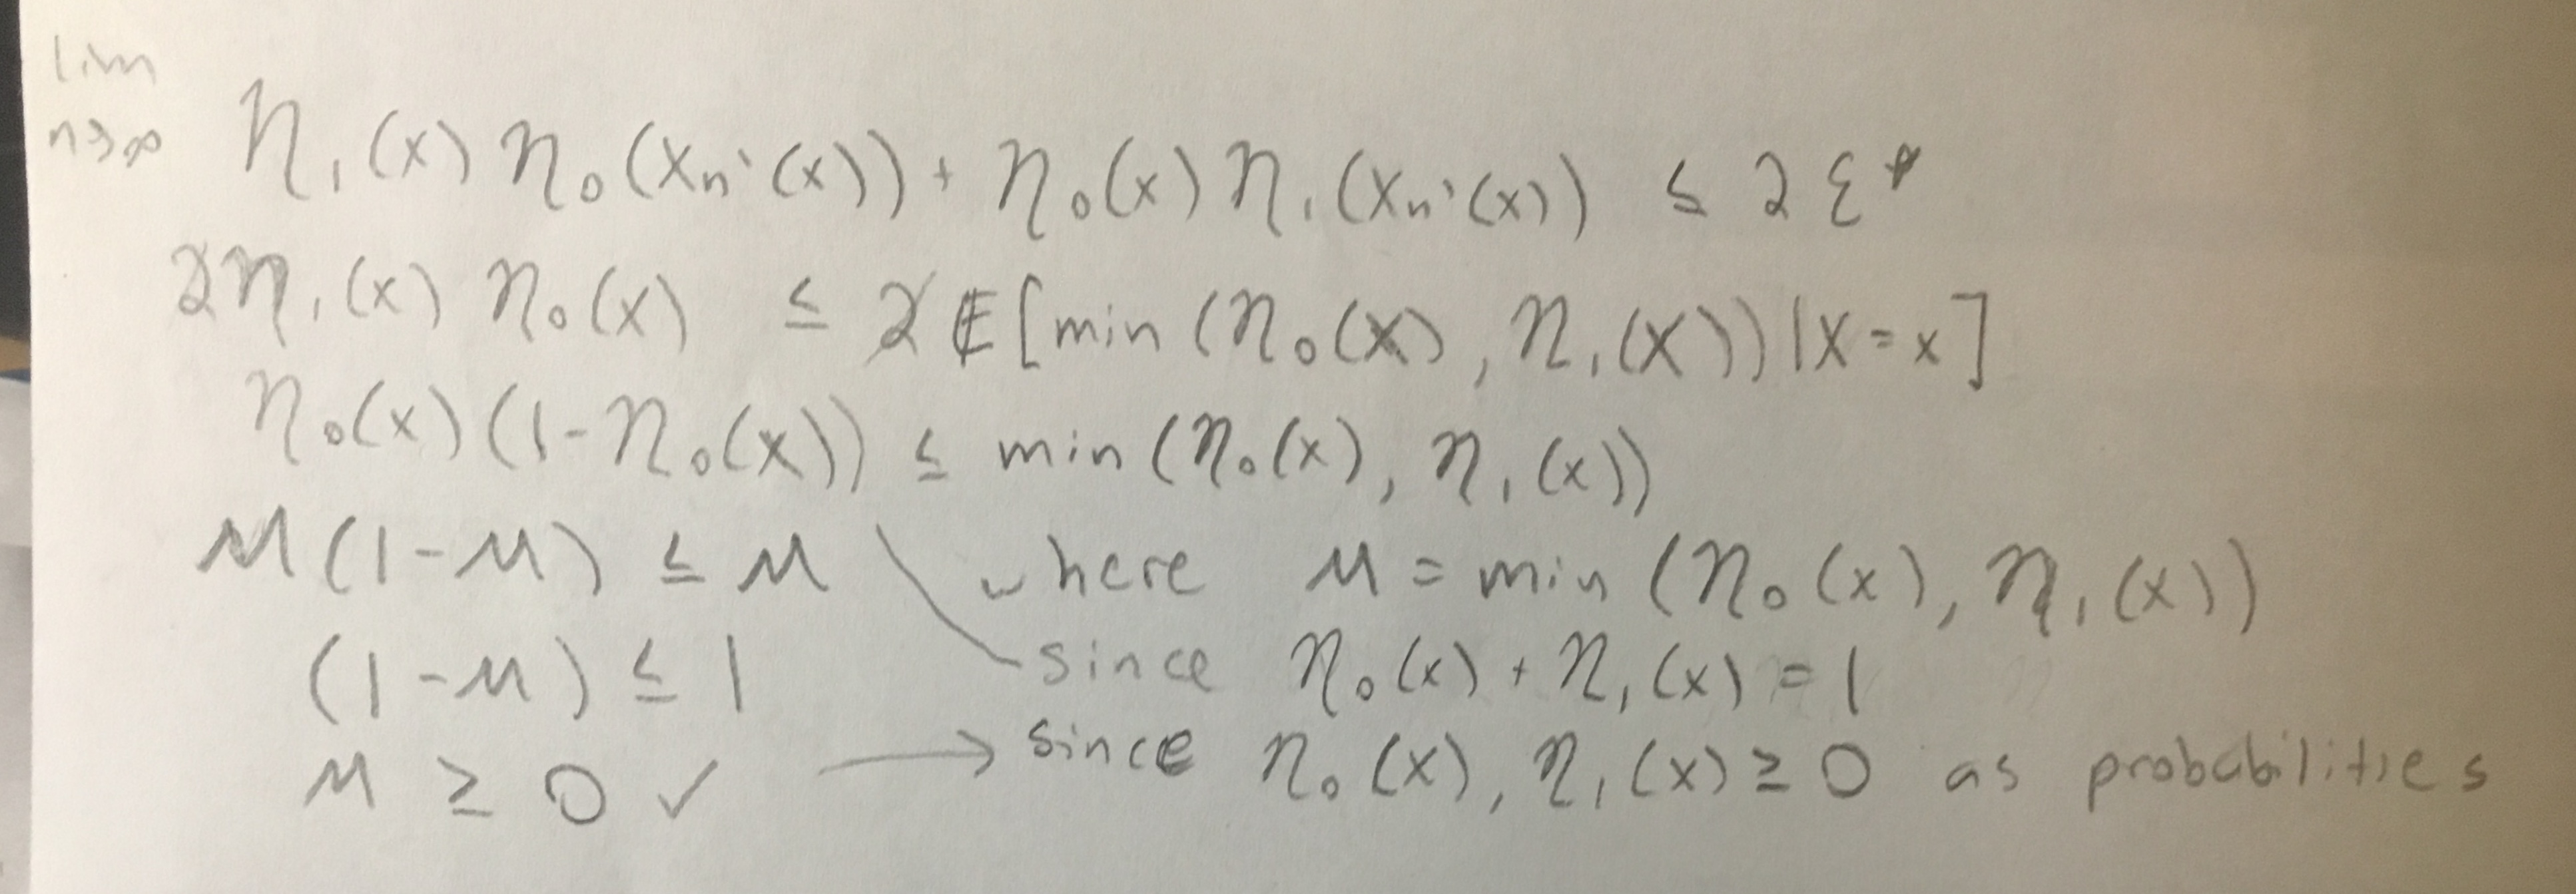 lim
n→∞ η₁(x) η₀(xₙ'(x)) + η₀(x) η₁(xₙ'(x)) ≤ 2 ε*
2η₁(x) η₀(x) ≤ 2 E[min(η₀(X), η₁(X))|X=x]
η₀(x)(1-η₀(x)) ≤ min(η₀(x), η₁(x))
M(1-M) ≤ M where M = min(η₀(x), η₁(x))
(1-M) ≤ 1 since η₀(x) + η₁(x) = 1
M ≥ 0 ✓ → since η₀(x), η₁(x) ≥ 0 as probabilities